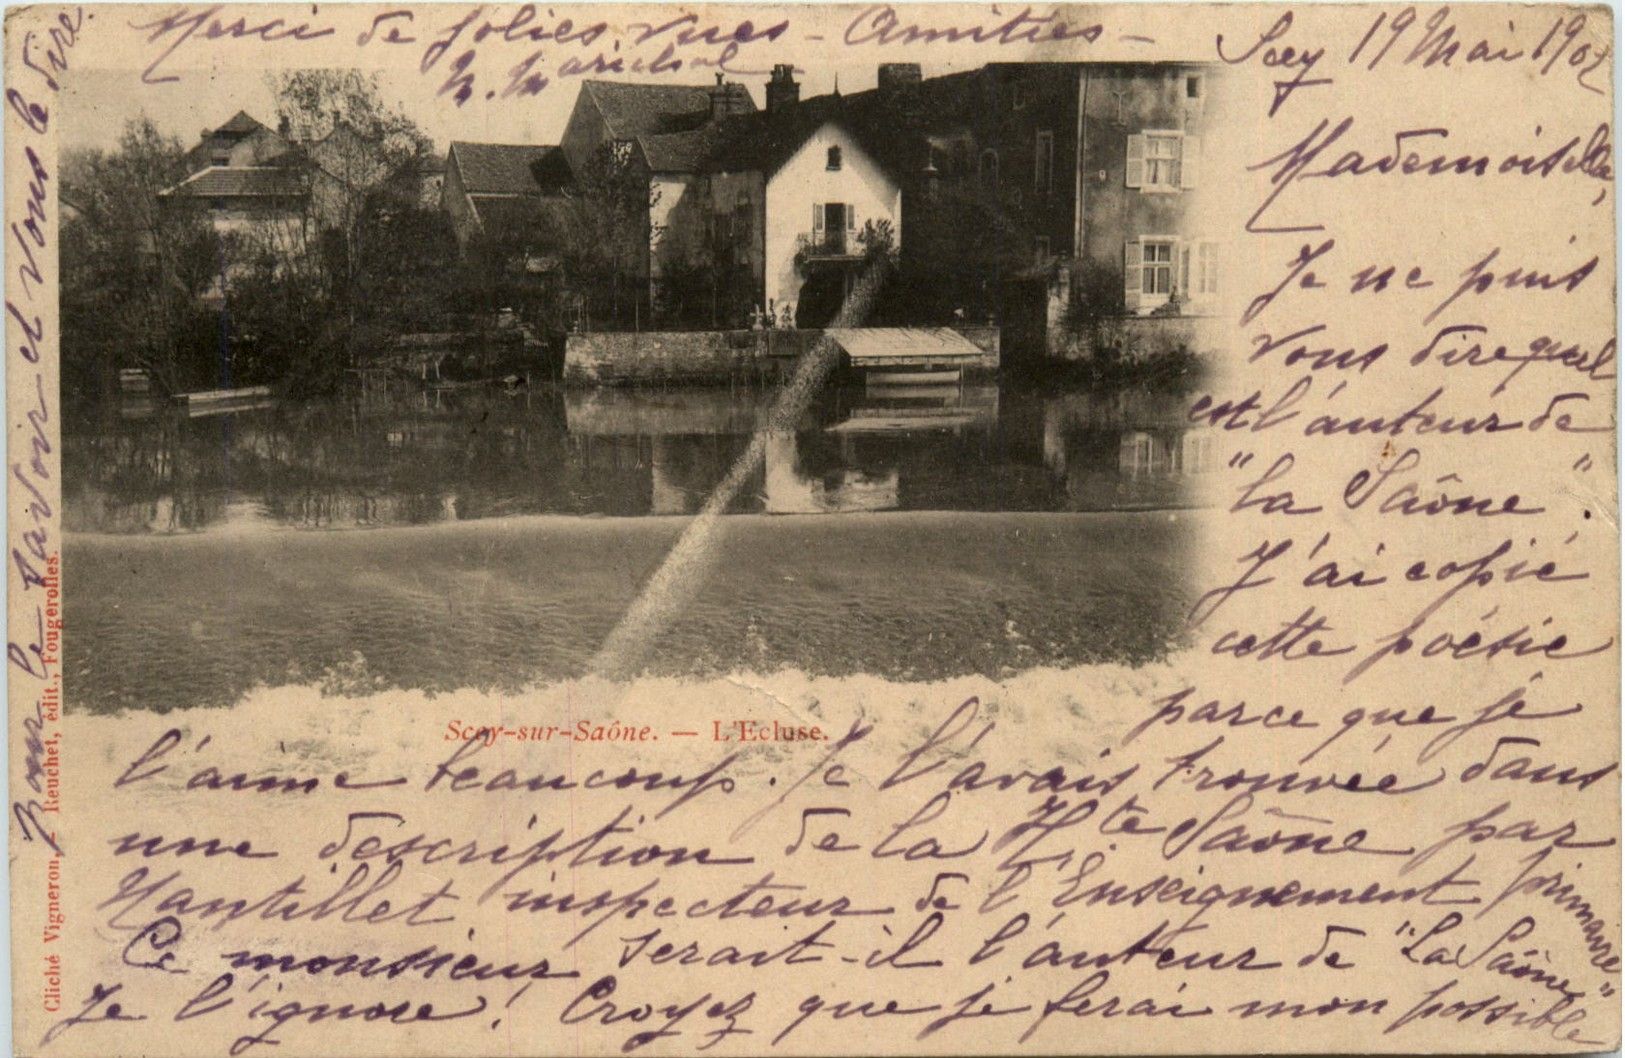 Merci de jolies vues - Amitiés -
Scey 19 Mai 1902
Mademoiselle,
Je ne puis
vous dire quel
est l'auteur de
"la Saône".
J'ai copié
cette poésie
parce que je
l'aime beaucoup. Je l'avais trouvée dans
une description de la Hte Saône par
inspecteur de l'Enseignement primaire
Ce monsieur serait-il l'auteur de "La Saône"
Je l'ignore! Croyez que je ferai mon possible
Pour le savoir et vous le dire
Scey-sur-Saône. — L'Ecluse.
Cliché Vigneron, - Reuchet, édit., Fougerolles.